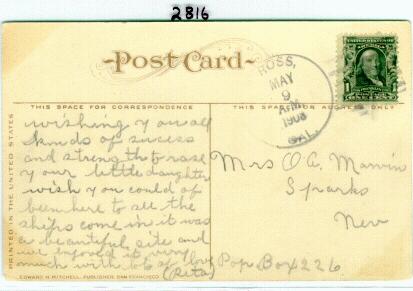 2816
Post Card
ROSS,
MAY
9
A.M.
1908
CAL.
THIS SPACE FOR CORRESPONDENCE
THIS SPACE FOR ADDRESS ONLY
PRINTED IN THE UNITED STATES
wishing you all
kinds of sucess
and strength to rase
your little daughter
wish you could of
been here to see the
ships come in it was
a beautiful site and
we enjoyed it very
much with lots of love
(Rita)
Mrs O.A. Marvin
Sparks
Nev
Pop Box 226
EDWARD H. MITCHELL, PUBLISHER, SAN FRANCISCO